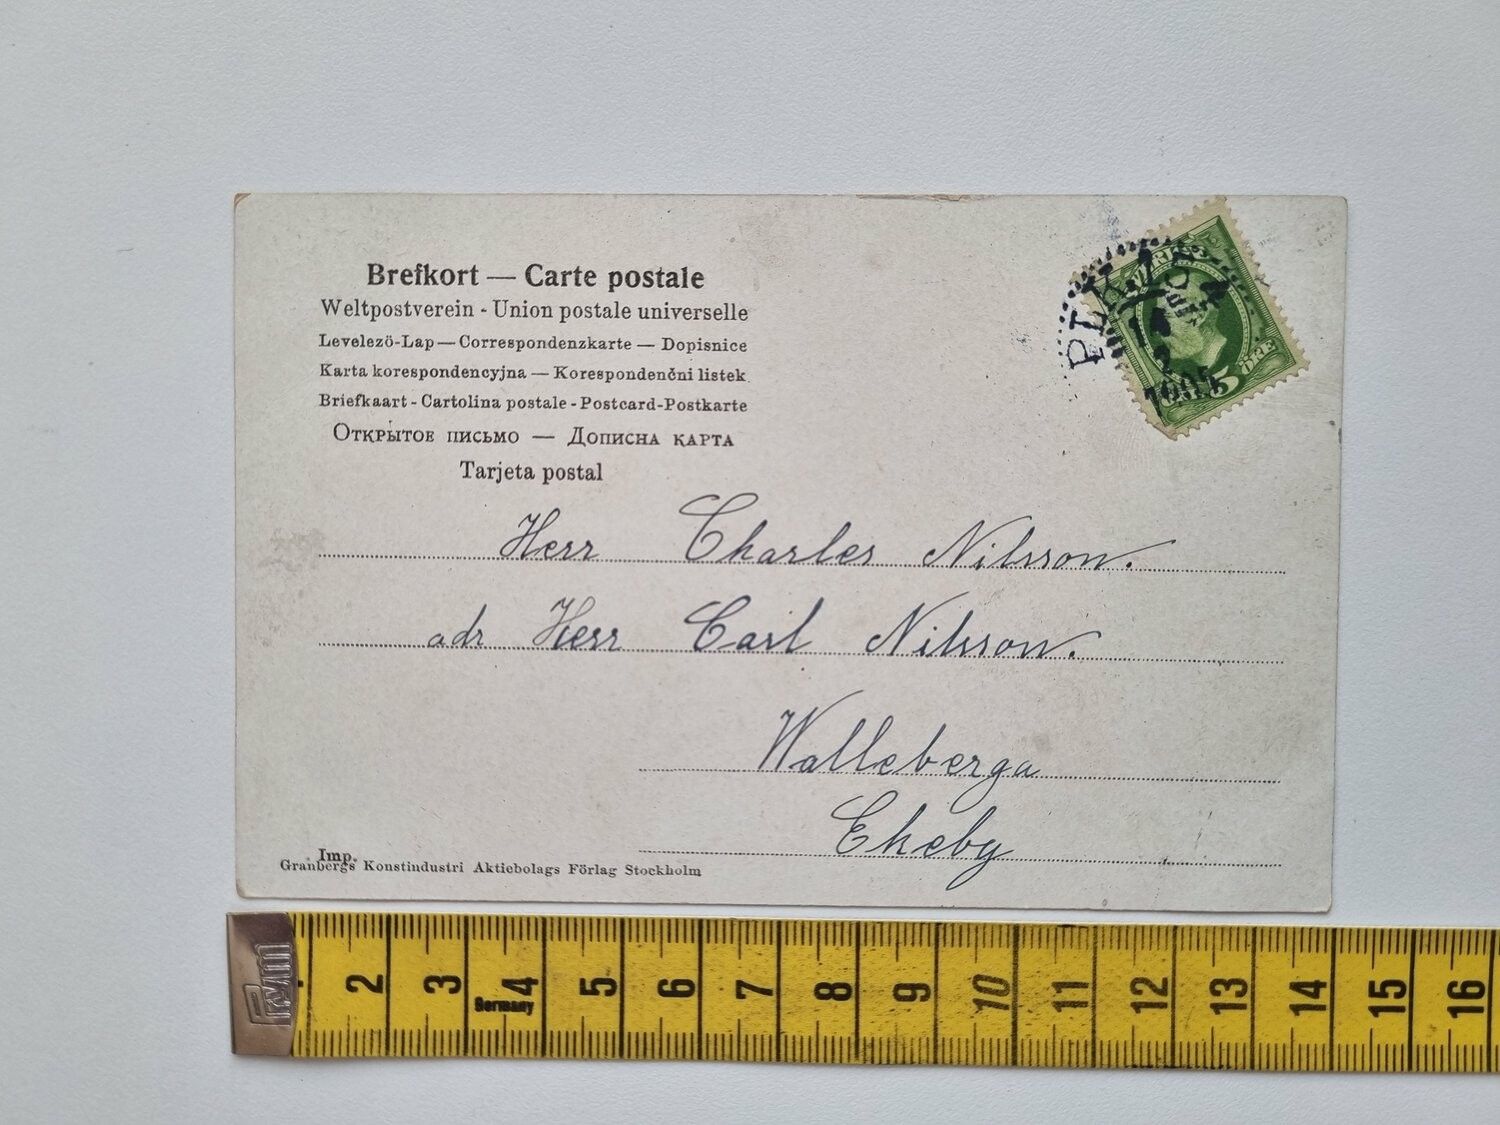 Brefkort — Carte postale
Weltpostverein - Union postale universelle
Levelezö-Lap — Correspondenzkarte — Dopisnice
Karta korespondencyjna — Korespondenčni listek
Briefkaart - Cartolina postale - Postcard-Postkarte
Открытое письмо — Дописна карта
Tarjeta postal
SVERIGE
14
2
1905
5 ÖRE
Herr Charles Nilsson.
adr Herr Carl Nilsson.
Walleberga
Ekeby
Imp.
Granbergs Konstindustri Aktiebolags Förlag Stockholm
Prym 2 3 4 5 6 7 8 9 10 11 12 13 14 15 16
Germany